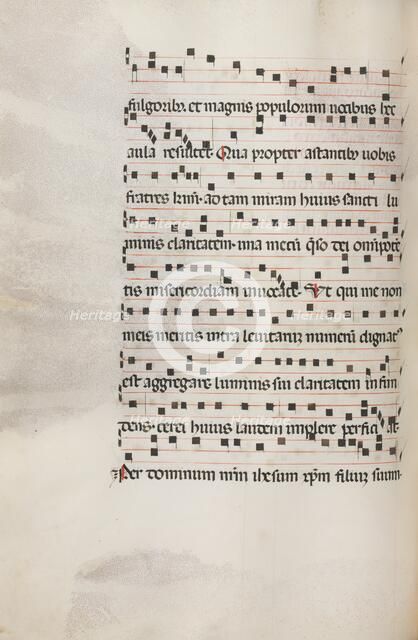 fulgoribus. et magnis populorum uocibus hec
aula resultet. Qua propter astantibus uobis
fratres krmi. ad tam miram huius sancti lu
minis claritatem. una mecum qso dei omnipote
tis misericordiam inuocate. Ut qui me non
meis meritis intra leuitarum numerum dignatus
est aggregare luminis sui claritatem infun
dens. cerei huius laudem implere perficiat.
Per dominum nrm ihesum xpm filium suum.
Heritage Images